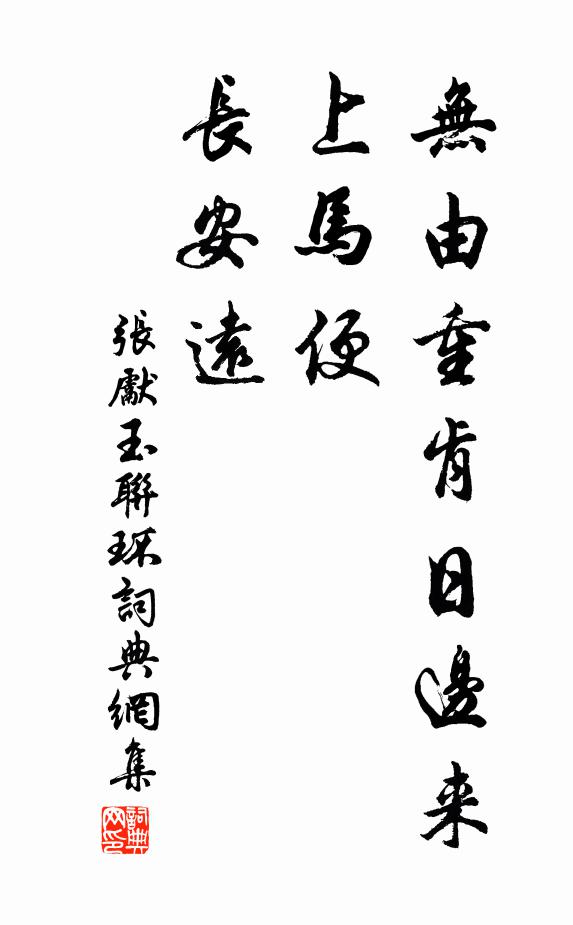 無由重肯日邊来
上馬便
長安遠
張獻玉聯珠詞典網集
詞典网印